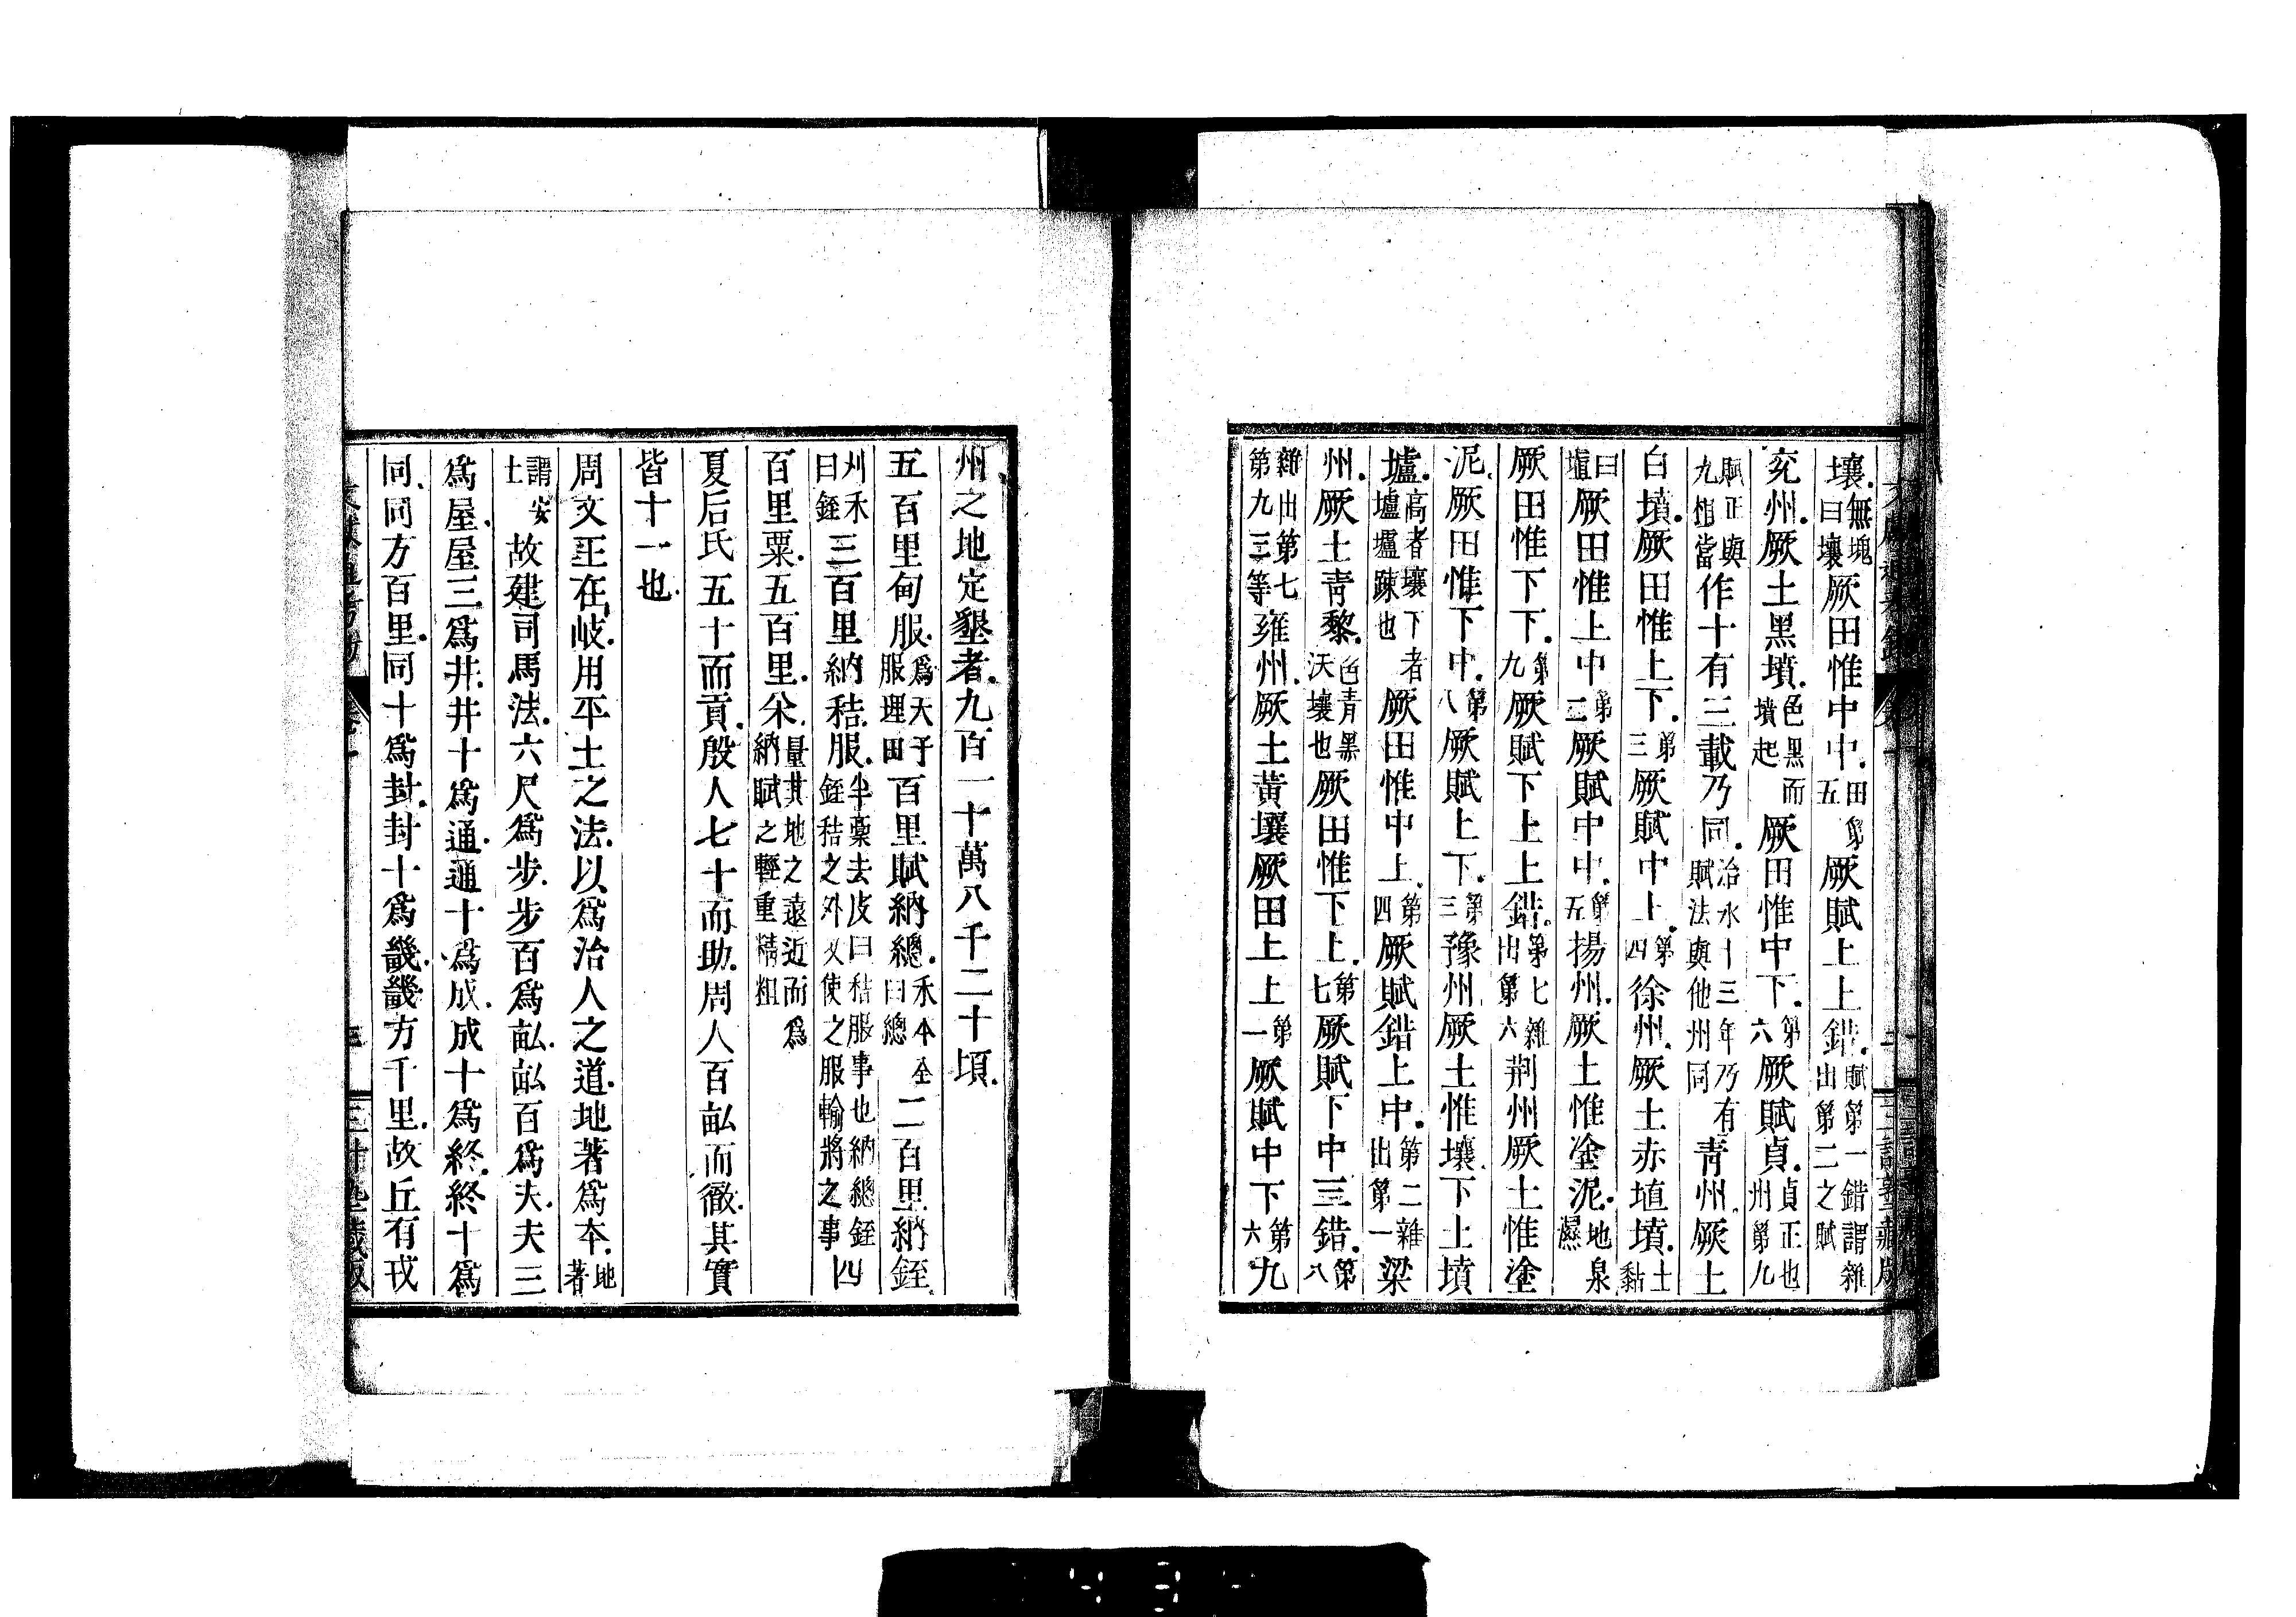 壤無塊曰壤厥田惟中中田第五厥賦上上錯賦第一錯謂雜出第二之賦
兖州厥土黑墳色黑而墳起厥田惟中下第六厥賦貞貞正也州第九
賦正與九相當作十有三載乃同治水十三年乃有賦法與他州同青州厥土
白墳厥田惟上下第三厥賦中上第四徐州厥土赤埴墳土黏
曰埴厥田惟上中第二厥賦中中第五揚州厥土惟塗泥地泉濕
厥田惟下下第九厥賦下上上錯第七雜出第六荆州厥土惟塗
泥厥田惟下中第八厥賦上下第三豫州厥土惟壤下土墳
壚高者壤下者壚壚踈也厥田惟中上第四厥賦錯上中第二雜出第一梁
州厥土青黎色青黑沃壤也厥田惟下上第七厥賦下中三錯第八
雜出第七第九三等雍州厥土黃壤厥田上上第一厥賦中下第六九
州之地定墾者九百一十萬八千二十頃
五百里甸服爲天子服理田百里賦納總禾本全曰總二百里納銍
刈禾曰銍三百里納秸服半藁去皮曰秸服事也納總銍銍秸之外又使之服輸將之事四
百里粟五百里米量其地之遠近而爲納賦之輕重精粗
夏后氏五十而貢殷人七十而助周人百畝而徹其實
皆十一也
周文王在岐用平土之法以爲治人之道地著爲本地著
謂安土故建司馬法六尺爲步步百爲畝畝百爲夫夫三
爲屋屋三爲井井十爲通通十爲成成十爲終終十爲
同同方百里同十爲封封十爲畿畿方千里故丘有戎